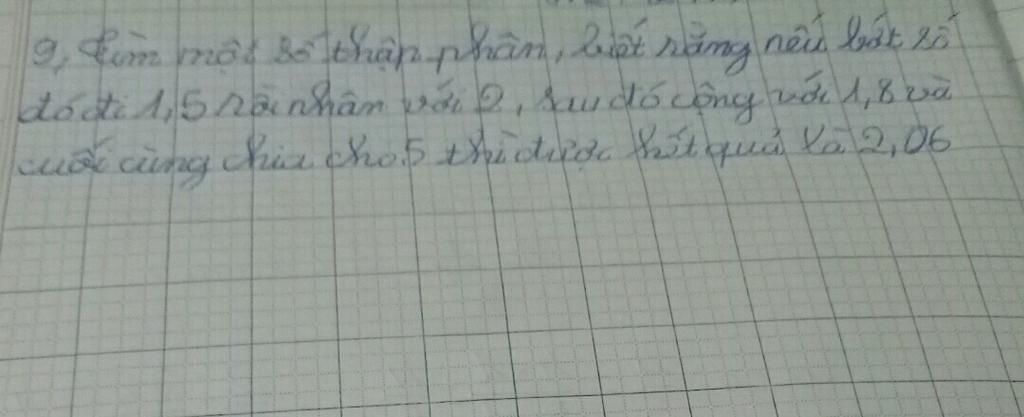 9, Tìm một số thập phân, biết rằng nếu bớt số
đó đi 1,5 rồi nhân với 2, sau đó cộng với 1,8 và
cuối cùng chia cho 5 thì được kết quả là 2,06